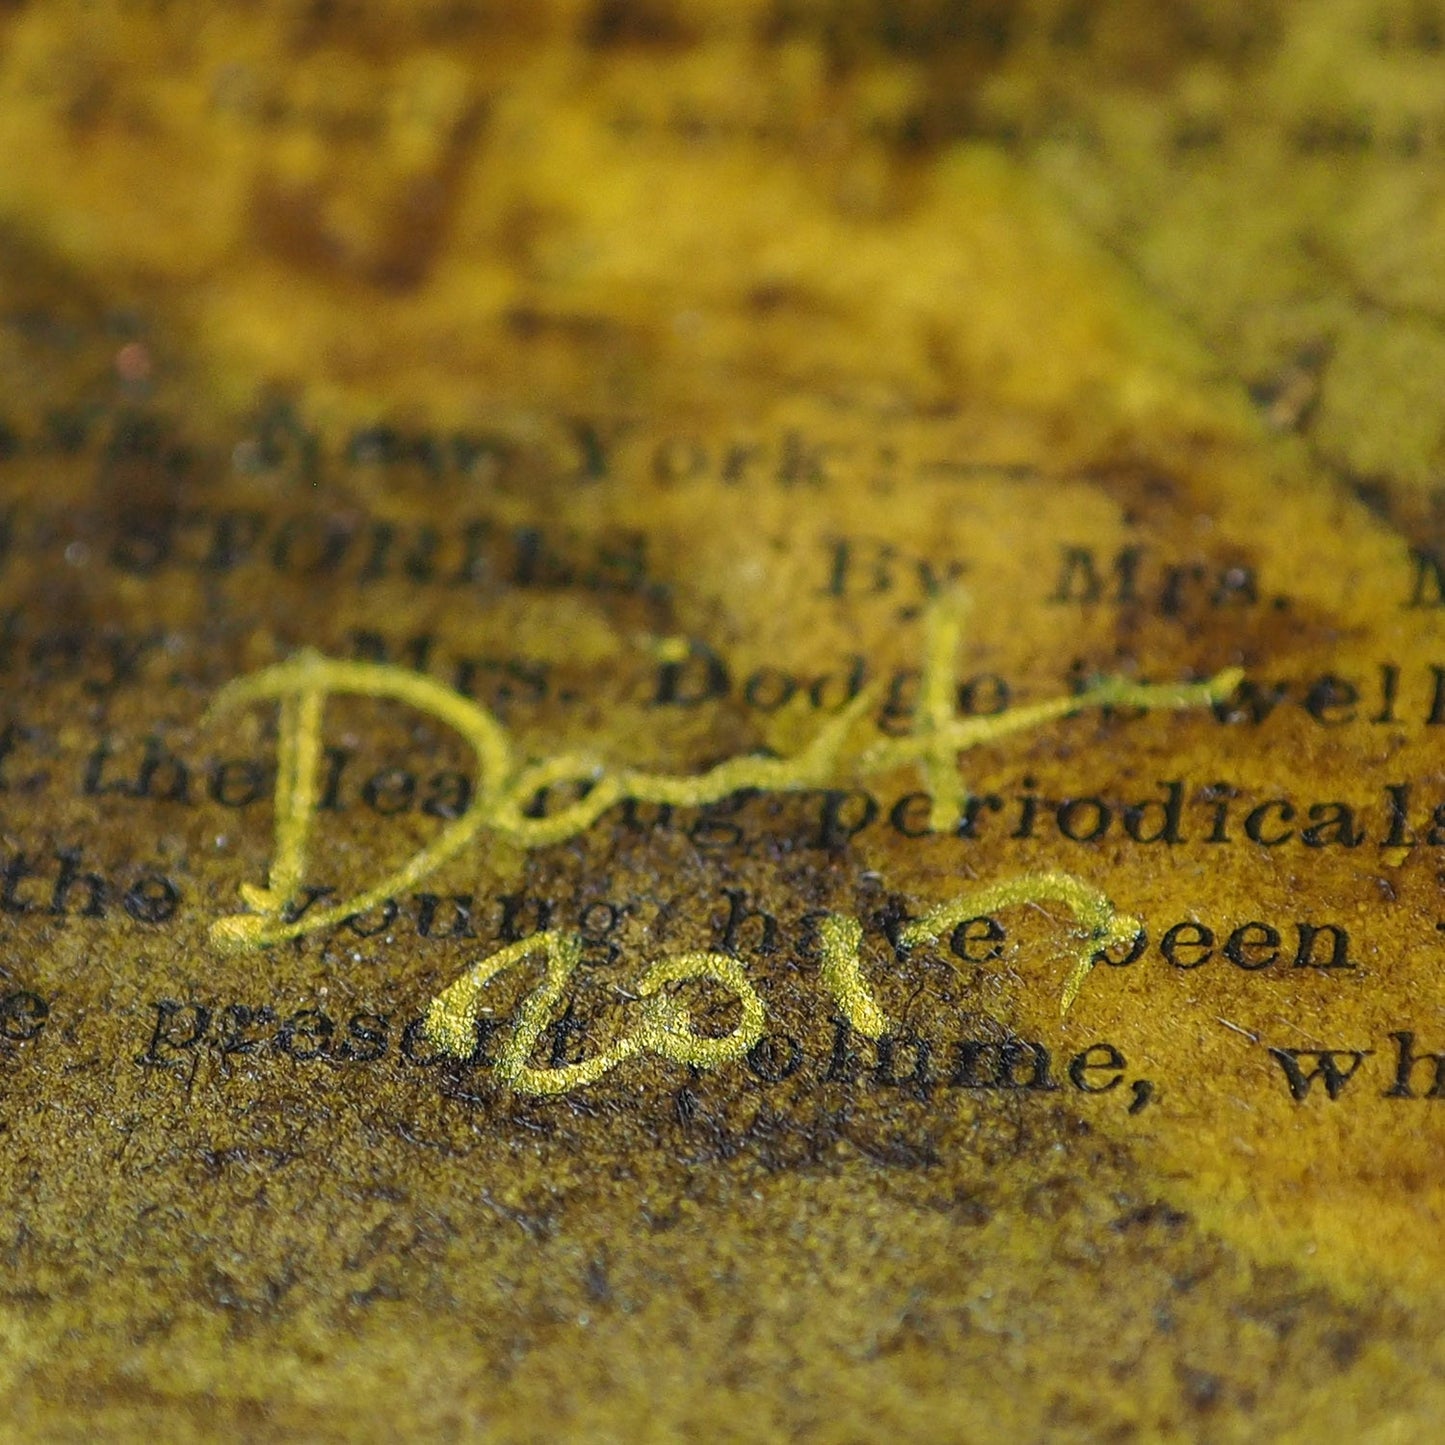 New York:—
STORIES. By Mrs. M
Mrs. Dodge is well
the leading periodicals
the young have been
e present volume, wh
2017